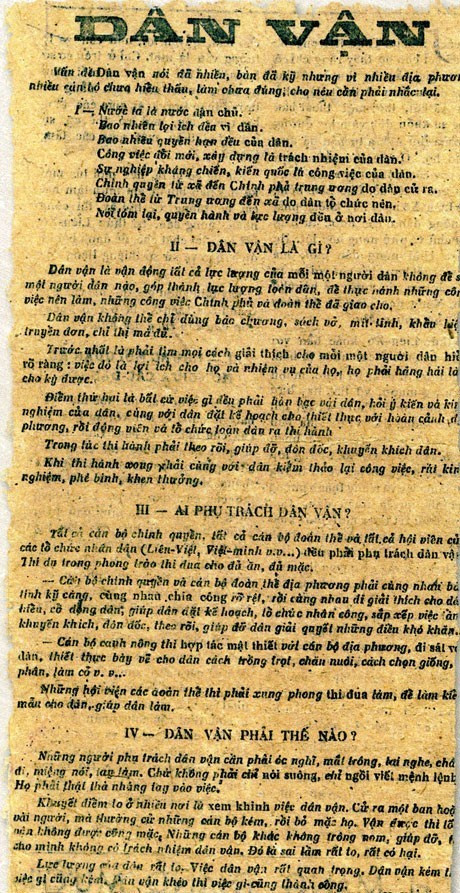 DÂN VẬN
Vấn đề Dân vận nói đã nhiều, bàn đã kỹ nhưng vì nhiều địa phươn
nhiều cán bộ chưa hiểu thấu, làm chưa đúng, cho nên cần phải nhắc lại.
I — Nước ta là nước dân chủ.
Bao nhiêu lợi ích đều vì dân.
Bao nhiêu quyền hạn đều của dân.
Công việc đổi mới, xây dựng là trách nhiệm của dân.
Sự nghiệp kháng chiến, kiến quốc là công việc của dân.
Chính quyền từ xã đến Chính phủ trung ương do dân cử ra.
Đoàn thể từ Trung ương đến xã do dân tổ chức nên.
Nói tóm lại, quyền hành và lực lượng đều ở nơi dân.
II — DÂN VẬN LÀ GÌ ?
Dân vận là vận động tất cả lực lượng của mỗi một người dân không để s
một người dân nào, góp thành lực lượng toàn dân, để thực hành những cô
việc nên làm, những công việc Chính phủ và đoàn thể đã giao cho.
Dân vận không thể chỉ dùng báo chương, sách vở, mít-tinh, khẩu hiệ
truyền đơn, chỉ thị mà đủ.
Trước nhất là phải tìm mọi cách giải thích cho mỗi một người dân hiể
rõ ràng: việc đó là lợi ích cho họ và nhiệm vụ của họ, họ phải hăng hái là
cho kỳ được.
Điểm thứ hai là bất cứ việc gì đều phải bàn bạc với dân, hỏi ý kiến và kin
nghiệm của dân, cùng với dân đặt kế hoạch cho thiết thực với hoàn cảnh đ
phương, rồi động viên và tổ chức toàn dân ra thi hành
Trong lúc thi hành phải theo rõi, giúp đỡ, đôn đốc, khuyến khích dân.
Khi thi hành xong phải cùng với dân kiểm thảo lại công việc, rút kin
nghiệm, phê bình, khen thưởng.
III — AI PHỤ TRÁCH DÂN VẬN ?
Tất cả cán bộ chính quyền, tất cả cán bộ đoàn thể và tất cả hội viên củ
các tổ chức nhân dân (Liên-Việt, Việt-minh v.v...) đều phải phụ trách dân vậ
Thí dụ trong phong trào thi đua cho đủ ăn, đủ mặc,
— Cán bộ chính quyền và cán bộ đoàn thể địa phương phải cùng nhau bà
tính kỹ càng, cùng nhau chia công rõ rệt, rồi cùng nhau đi giải thích cho dâ
hiểu, cổ động dân, giúp dân đặt kế hoạch, tổ chức nhân công, sắp xếp việc làm
khuyến khích, đôn đốc, theo rõi, giúp đỡ dân giải quyết những điều khó khăn.
— Cán bộ canh nông thì hợp tác mật thiết với cán bộ địa phương, đi sát vớ
dân, thiết thực bày vẽ cho dân cách trồng trọt, chăn nuôi, cách chọn giống,
phân, làm cỏ v. v...
Những hội viên các đoàn thể thì phải xung phong thi đua làm, để làm kiể
mẫu cho dân, giúp dân làm.
IV — DÂN VẬN PHẢI THẾ NÀO ?
Những người phụ trách dân vận cần phải óc nghĩ, mắt trông, tai nghe, châ
đi, miệng nói, tay làm. Chứ không phải chỉ nói suông, chỉ ngồi viết mệnh lệnh
Họ phải thật thà nhúng tay vào việc.
Khuyết điểm to ở nhiều nơi là xem khinh việc dân vận. Cử ra một ban hoặ
vài người, mà thường cử những cán bộ kém, rồi bỏ mặc họ. Vận được thì tố
vận không được cũng mặc. Những cán bộ khác không trông nom, giúp đỡ, t
cho mình không có trách nhiệm dân vận. Đó là sai lầm rất to, rất có hại.
Lực lượng của dân rất to. Việc dân vận rất quan trọng. Dân vận kém th
việc gì cũng kém. Dân vận khéo thì việc gì cũng thành công.